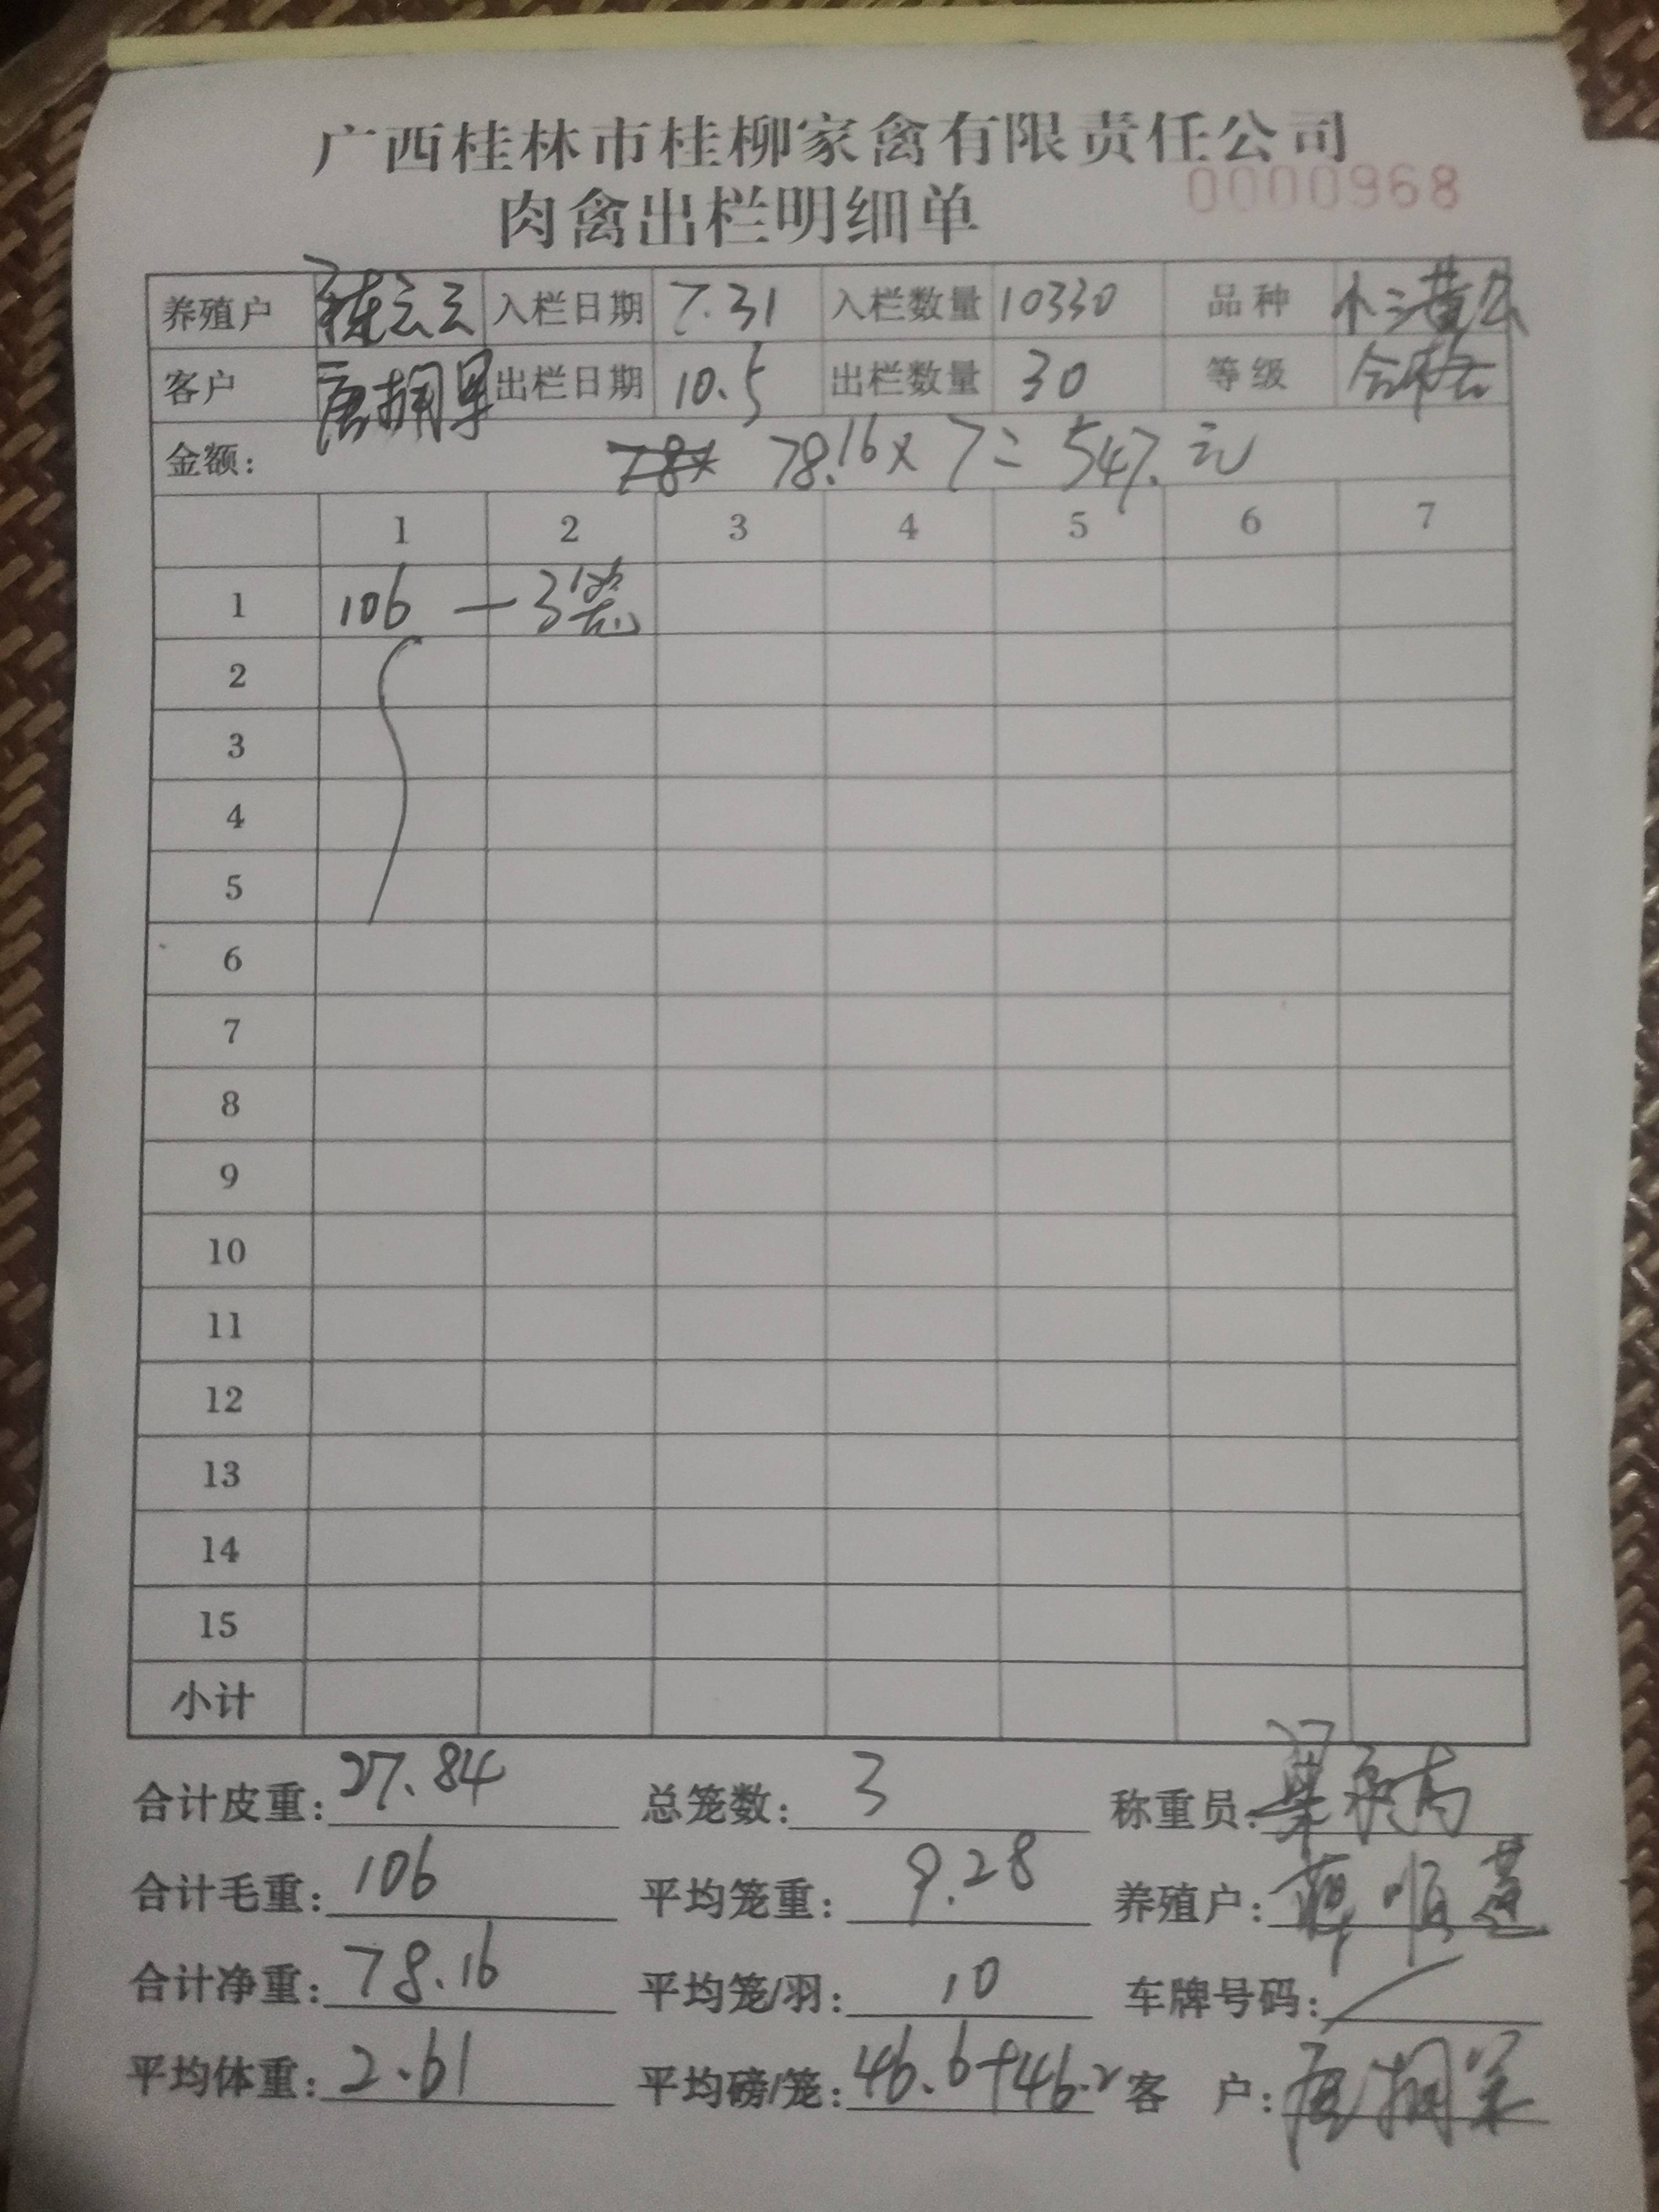 广西桂林市桂柳家禽有限责任公司
0000968
肉禽出栏明细单
养殖户 入栏日期 7.31 入栏数量 10330 品种 小三黄公
客户 唐 出栏日期 10.5 出栏数量 30 等级
金额: 78.16×7=547.元
1 2 3 4 5 6 7
1 106 — 3笼
2
3
4
5
6
7
8
9
10
11
12
13
14
15
小计
合计皮重: 27.84 总笼数: 3 称重员:
合计毛重: 106 平均笼重: 9.28 养殖户:
合计净重: 78.16 平均笼/羽: 10 车牌号码: /
平均体重: 2.61 平均磅/笼: 46.6+46.2 客 户: 唐